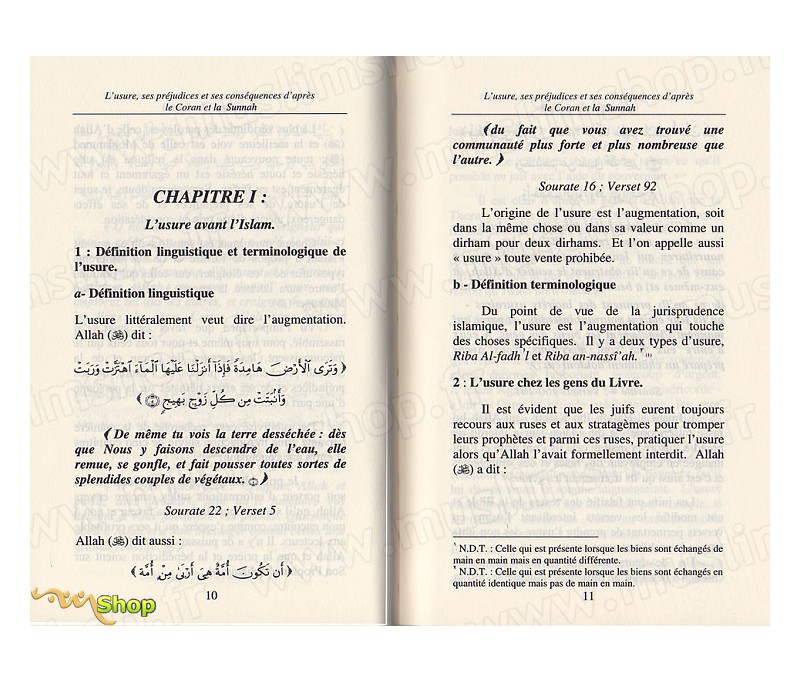 L'usure, ses préjudices et ses conséquences d'après
le Coran et la Sunnah
CHAPITRE I :
L'usure avant l'Islam.
1 : Définition linguistique et terminologique de
l'usure.
a- Définition linguistique
L'usure littéralement veut dire l'augmentation.
Allah (ﷻ) dit :
﴿ وَتَرَى ٱلْأَرْضَ هَامِدَةً فَإِذَآ أَنزَلْنَا عَلَيْهَا ٱلْمَآءَ ٱهْتَزَّتْ وَرَبَتْ
وَأَنۢبَتَتْ مِن كُلِّ زَوْجٍۭ بَهِيجٍ ۝ ﴾
﴾De même tu vois la terre desséchée : dès
que Nous y faisons descendre de l'eau, elle
remue, se gonfle, et fait pousser toutes sortes de
splendides couples de végétaux. ﴿
Sourate 22 ; Verset 5
Allah (ﷻ) dit aussi :
﴿ أَن تَكُونَ أُمَّةٌ هِىَ أَرْبَىٰ مِنْ أُمَّةٍ ﴾
10
Shop
L'usure, ses préjudices et ses conséquences d'après
le Coran et la Sunnah
﴾du fait que vous avez trouvé une
communauté plus forte et plus nombreuse que
l'autre. ﴿
Sourate 16 ; Verset 92
L'origine de l'usure est l'augmentation, soit
dans la même chose ou dans sa valeur comme un
dirham pour deux dirhams. Et l'on appelle aussi
« usure » toute vente prohibée.
b - Définition terminologique
Du point de vue de la jurisprudence
islamique, l'usure est l'augmentation qui touche
des choses spécifiques. Il y a deux types d'usure,
Riba Al-fadh'l et Riba an-nassî'ah.
2 : L'usure chez les gens du Livre.
Il est évident que les juifs eurent toujours
recours aux ruses et aux stratagèmes pour tromper
leurs prophètes et parmi ces ruses, pratiquer l'usure
alors qu'Allah l'avait formellement interdit. Allah
(ﷻ) a dit :
N.D.T. : Celle qui est présente lorsque les biens sont échangés de
main en main mais en quantité différente.
N.D.T. : Celle qui est présente lorsque les biens sont échangés en
quantité identique mais pas de main en main.
11